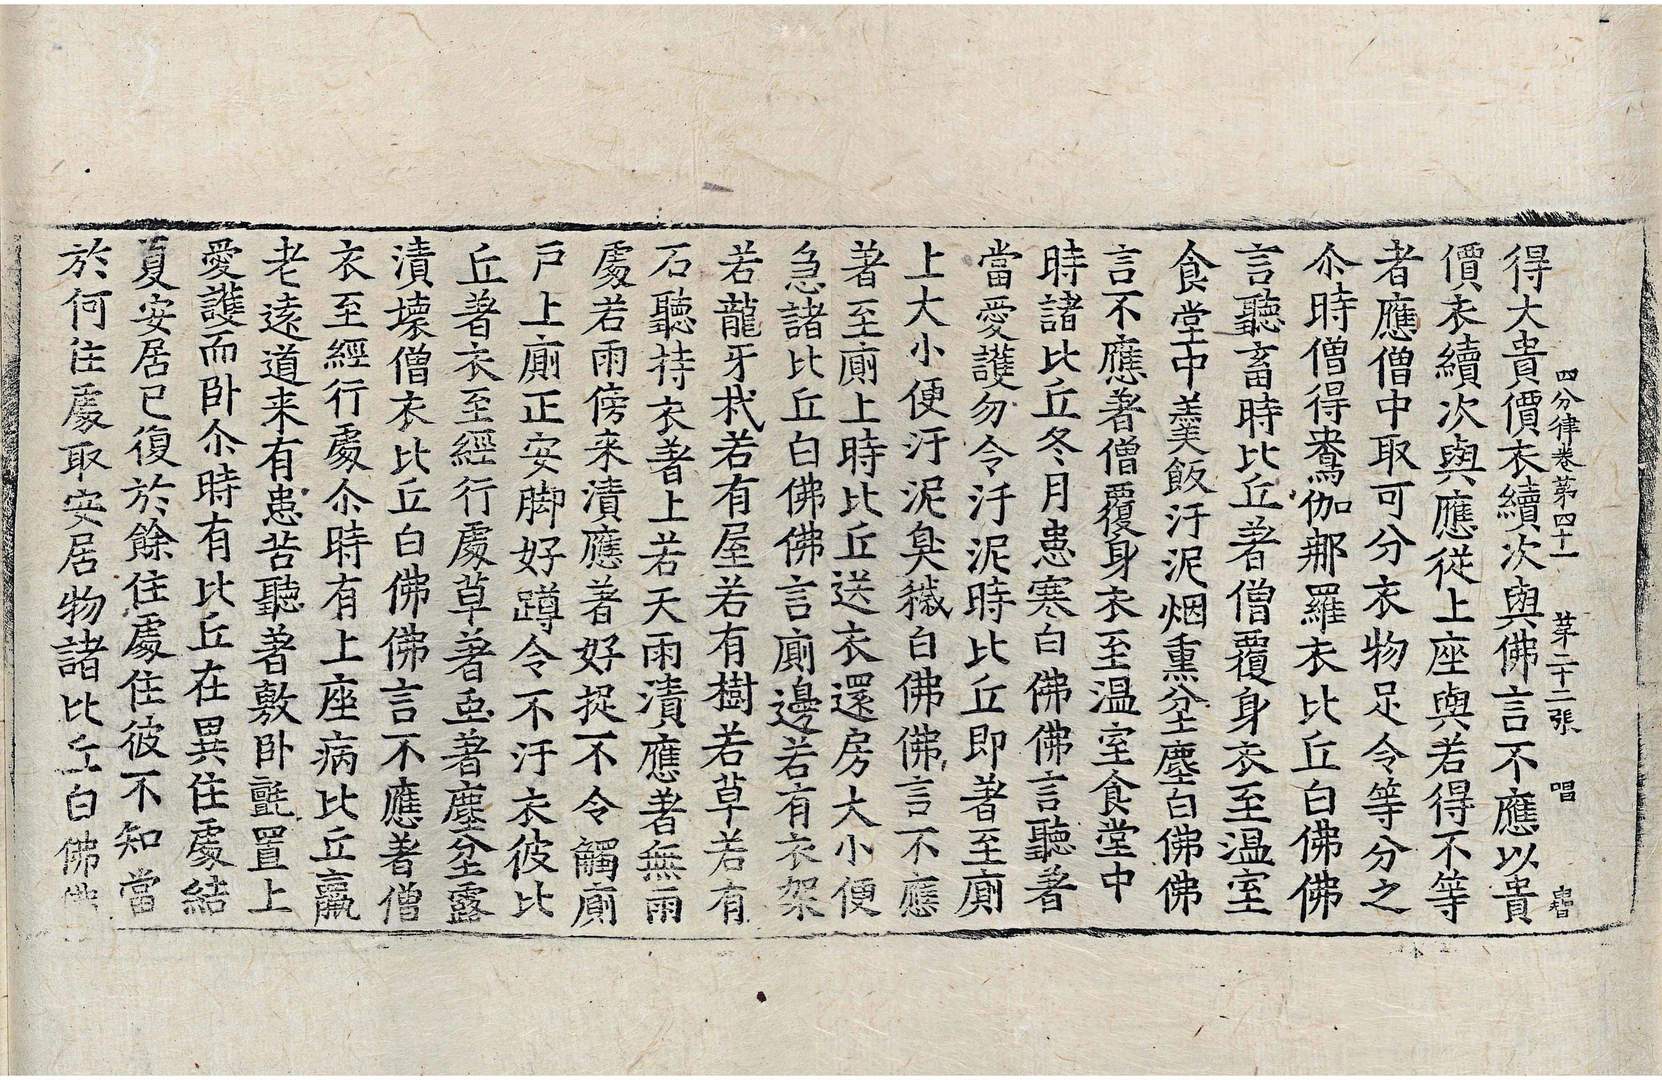 四分律卷第四十一 第二十二張 唱
得大貴價衣續次與佛言不應以貴
價衣續次與應從上座與若得不等
者應僧中取可分衣物足令等分之
尒時僧得鴦伽那羅衣比丘白佛佛
言聽畜時比丘著僧覆身衣至温室
食堂中羹飯汙泥烟熏坌塵白佛佛
言不應著僧覆身衣至温室食堂中
時諸比丘冬月患寒白佛佛言聽著
當愛護勿令汙泥時比丘即著至廁
上大小便汙泥臭穢白佛佛言不應
著至廁上時比丘送衣還房大小便
急諸比丘白佛佛言廁邊若有衣架
若龍牙杙若有屋若有樹若草若有
石聽持衣著上若天雨漬應著無雨
處若雨傍来漬應著好捉不令觸廁
戶上廁正安脚好蹲令不汙衣彼比
丘著衣至經行處草著䖝著塵坌露
漬壞僧衣比丘白佛佛言不應著僧
衣至經行處尒時有上座病比丘羸
老遠道来有患苦聽著敷卧氈置上
愛護而卧尒時有比丘在異住處結
夏安居已復於餘住處住彼不知當
於何住處取安居物諸比丘白佛佛